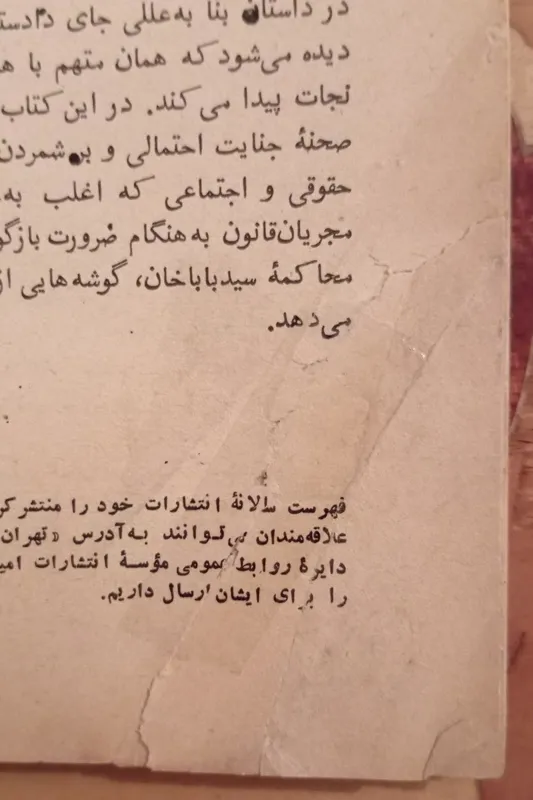 در داستان بنا به‌عللی جای دادست
دیده می‌شود که همان متهم با
نجات پیدا می‌کند. در این کتاب
صحنهٔ جنایت احتمالی و برشمردن
حقوقی و اجتماعی که اغلب به
مجریان‌قانون به‌هنگام ضرورت بازگو
محاکمهٔ سیدباباخان، گوشه‌هایی از
می‌دهد.
فهرست سالانهٔ انتشارات خود را منتشر کر
علاقه‌مندان می‌توانند به‌آدرس «تهران
دایرهٔ روابط عمومی مؤسسهٔ انتشارات امی
را برای ایشان ارسال داریم.